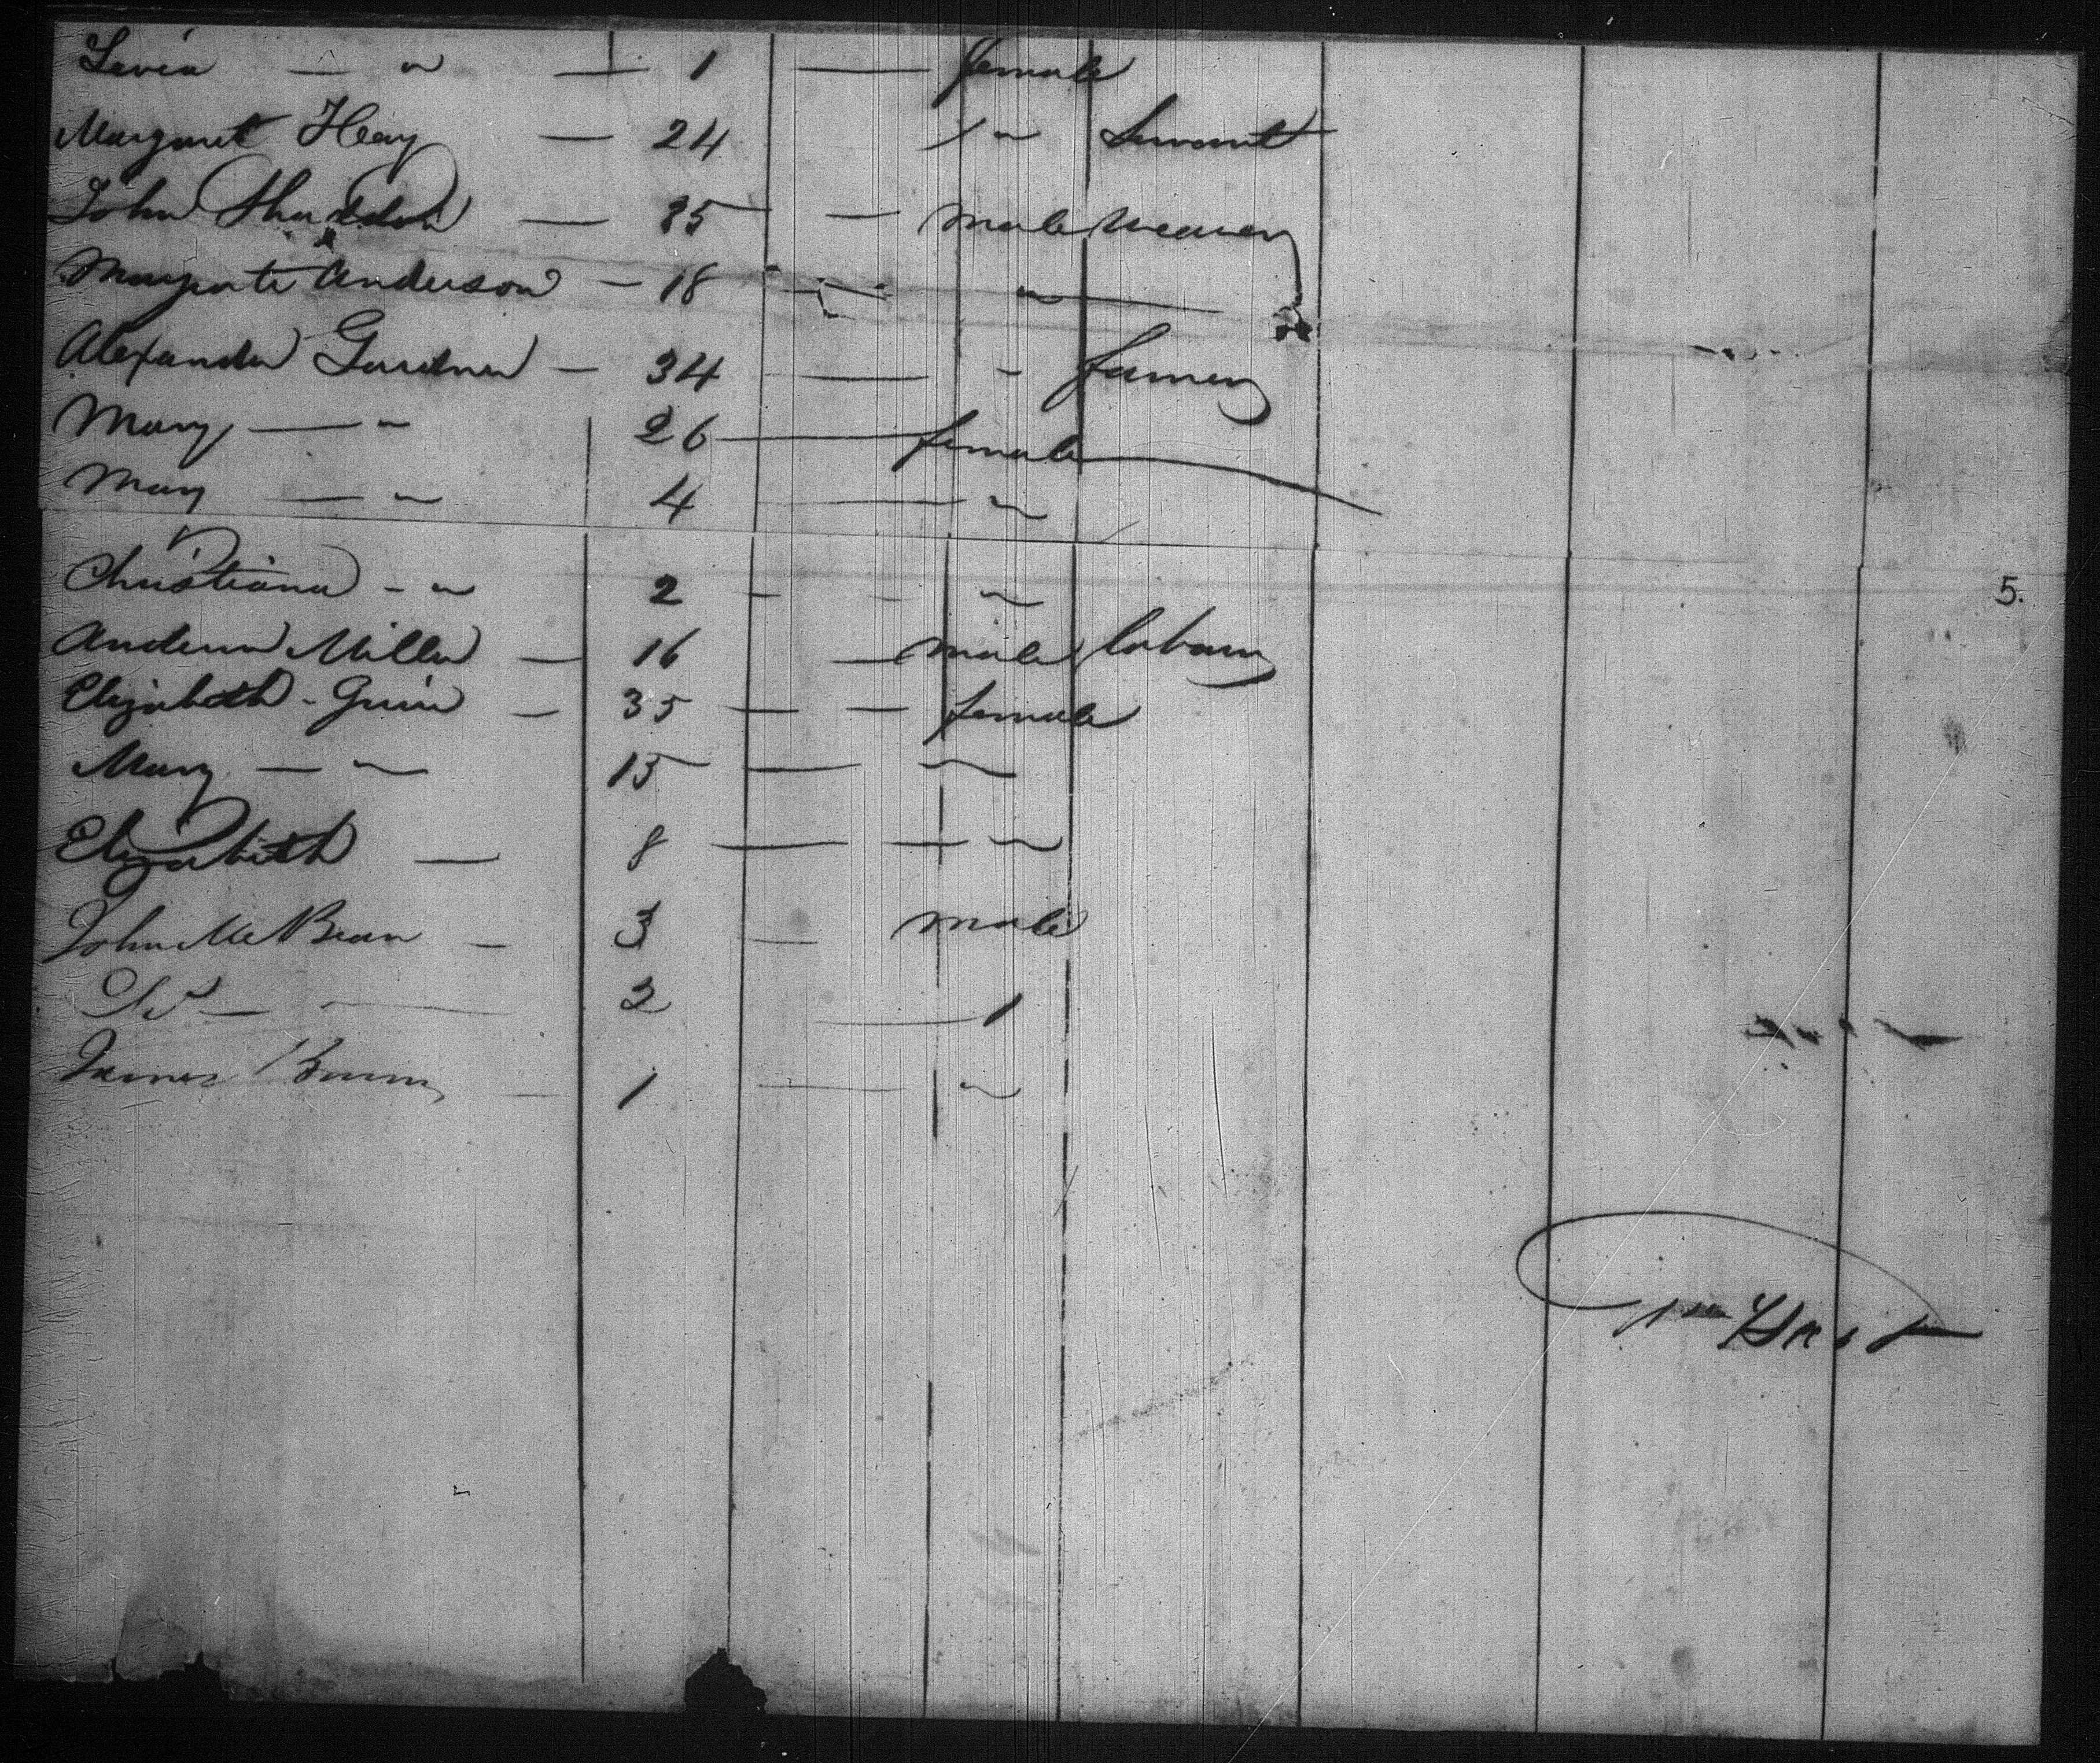 Levia — " — 1 — female
Margaret Heay — 24 " Servant
John Sheddon — 35 — male Weaver
Margarte Anderson — 18 — "
Alexander Gardner — 34 — - farmer
Mary — " 26 — female
Mary — " 4 — "
Christiana - " 2 - - "
Anderw Miller — 16 — male labourer
Elizabeth - Grier — 35 — — female
Mary — " 15 — "
Elizabeth — 8 — — "
John McBean — 3 — male
Do — — 2 —
James — 1 — "
5.